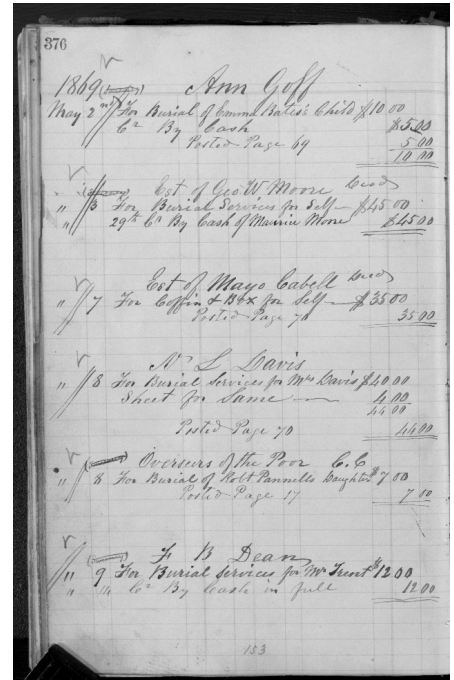 376
1869 Ann Goff
May 2nd For Burial of Emma Bates's Child $10.00
Cr By Cash $5.00
Posted Page 69 5.00
10.00
Est of Geo W Moore Decd
" 3 For Burial Services for Self $45.00
" 29th Cr By Cash of Maurice Moore $45.00
Est of Mayo Cabell Decd
" 7 For Coffin & Box for Self $35.00
Posted Page 70 35.00
N L Davis
" 8 For Burial Services for Mrs Davis $40.00
Sheet for Same 4.00
44.00
Posted Page 70 44.00
Overseers of the Poor C.C.
" 8 For Burial of Robt Pannells Daughter $7.00
Posted Page 17 7.00
F B Dean
" 9 For Burial Services for Mr Trent $12.00
" 14 Cr By Cash in full 12.00
153